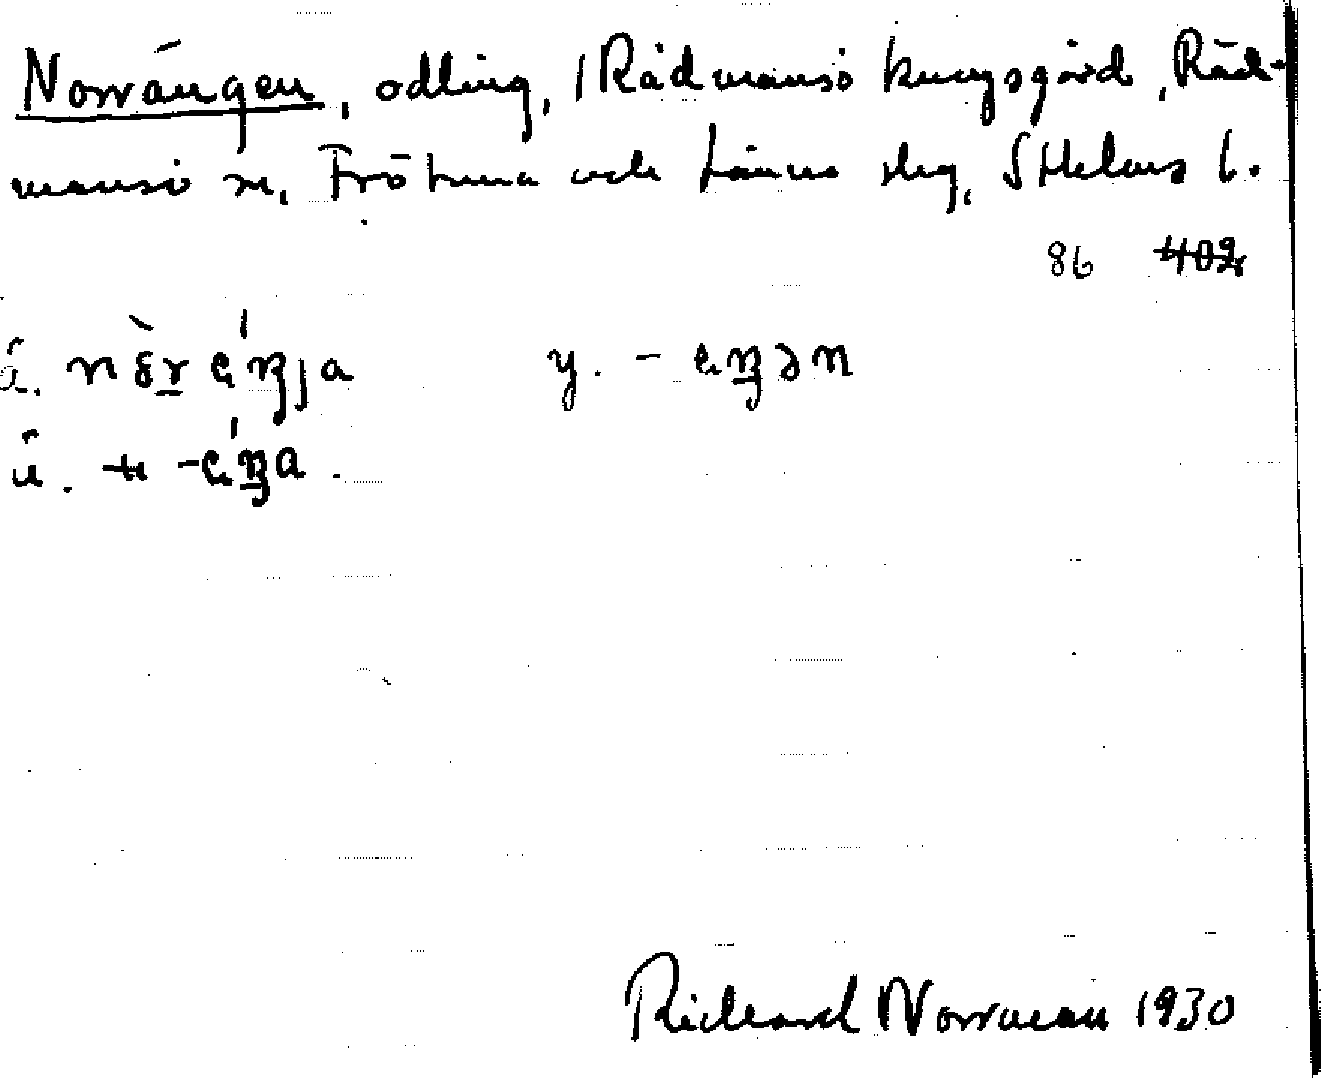 Norrängen, odling, 1 Rådmansö kungsgård, Råd-
mansö sn, Frötuna och Länna slg, Sthlms l.
86 402
ä. nȯrẹŋja y. - ẹŋən
ü. -ẹŋa.
Richard Norrman 1930